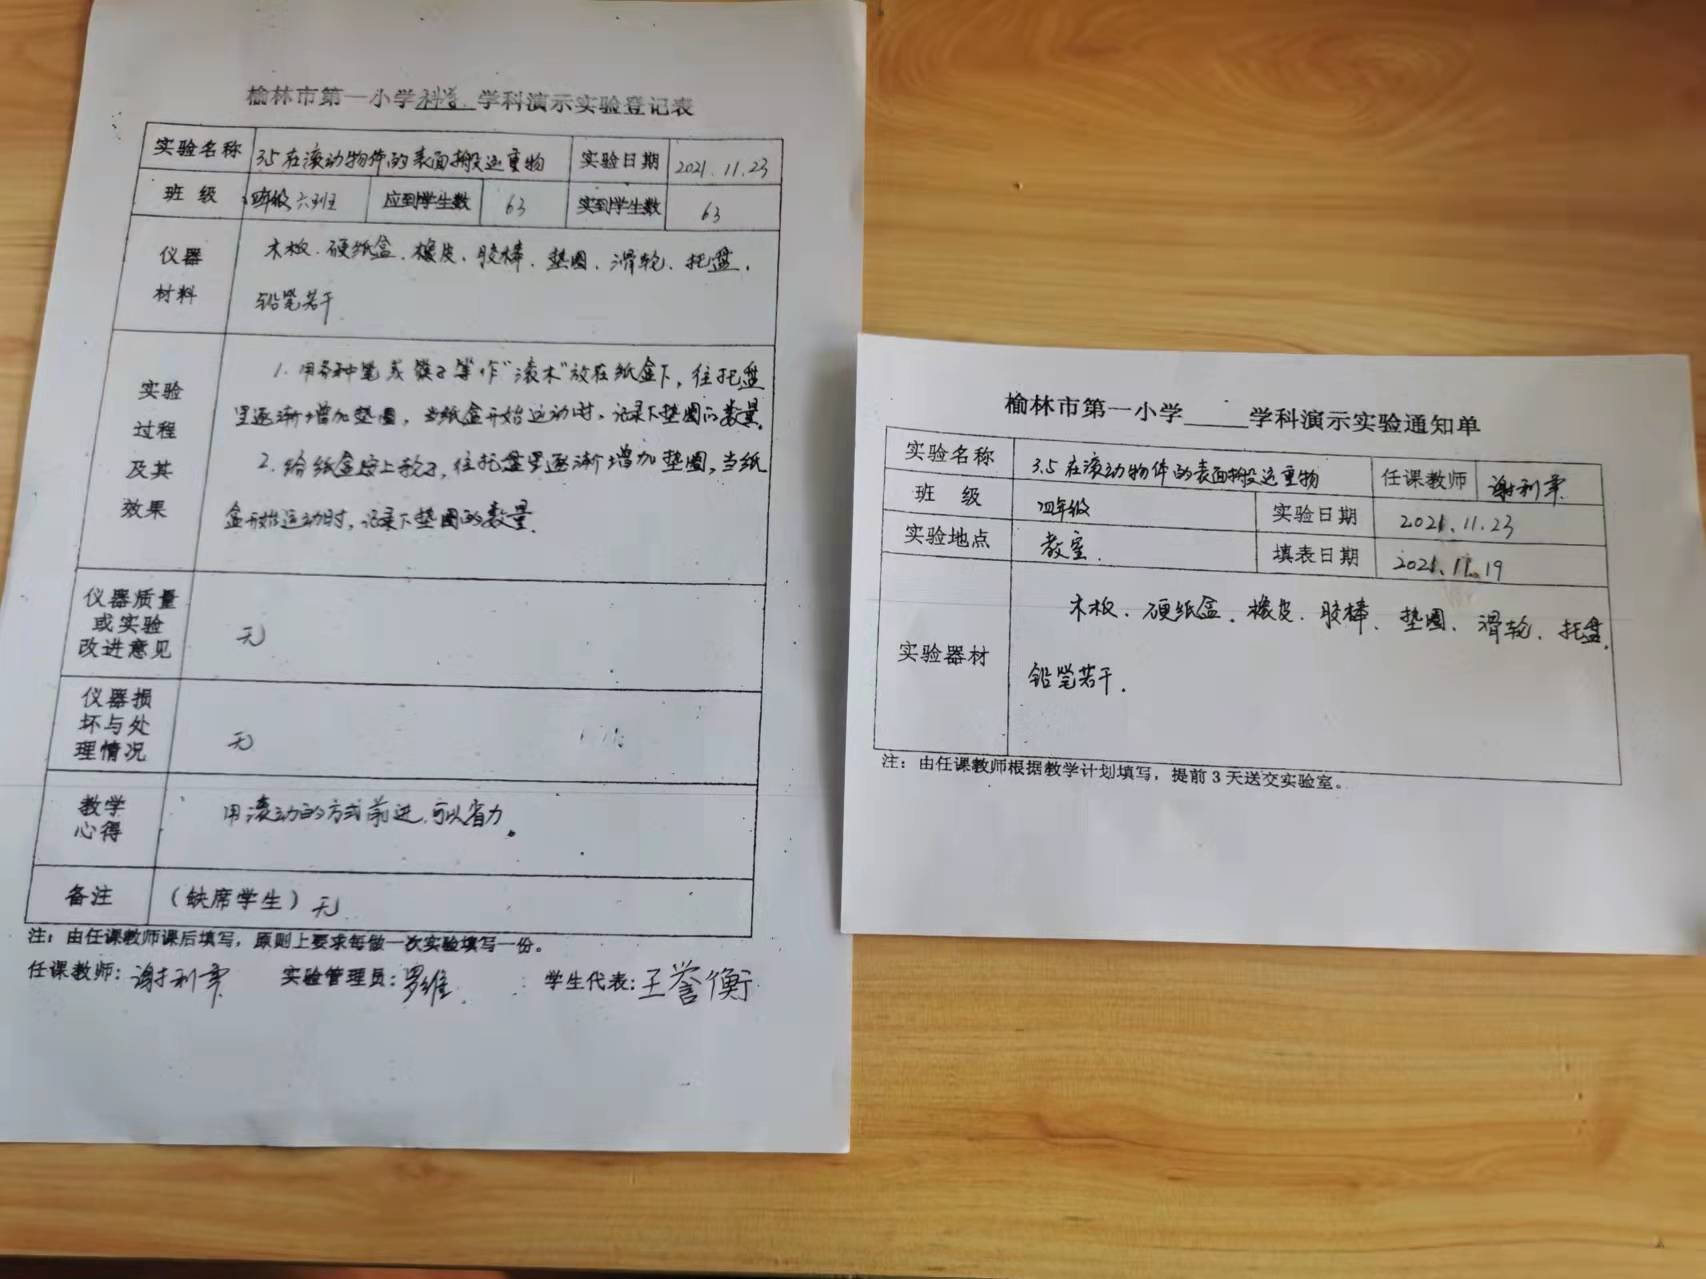 榆林市第一小学科学学科演示实验登记表
实验名称 3.5在滚动物体的表面搬运重物 实验日期 2021.11.23
班 级 四年级六班 应到学生数 63 实到学生数 63
仪器材料 木板、硬纸盒、橡皮、胶棒、垫圈、滑轮、托盘、
铅笔若干
实验过程及其效果 1.用各种笔或筷子等作"滚木"放在纸盒下,往托盘
里逐渐增加垫圈,当纸盒开始运动时,记录下垫圈的数量。
2.给纸盒上,往托盘里逐渐增加垫圈,当纸
盒开始运动时,记录下垫圈的数量。
仪器质量或实验改进意见 无
仪器损坏与处理情况 无
教学心得 用滚动的方式前进,可以省力。
备注 (缺席学生)无
注:由任课教师课后填写,原则上要求每做一次实验填写一份。
任课教师:谢利 实验管理员:罗维 学生代表:王誉衡
榆林市第一小学_____学科演示实验通知单
实验名称 3.5在滚动物体的表面搬运重物 任课教师 谢利
班 级 四年级 实验日期 2021.11.23
实验地点 教室. 填表日期 2021.11.19
实验器材 木板、硬纸盒、橡皮、胶棒、垫圈、滑轮、托盘、
铅笔若干.
注:由任课教师根据教学计划填写,提前3天送交实验室。